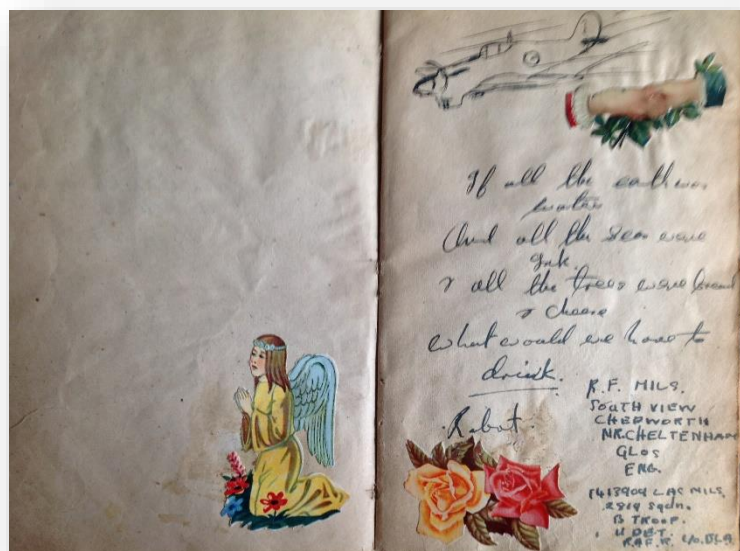 If all the earth was
water
And all the seas were
Ink.
& all the trees were bread
& cheese
What would we have to
drink.
Robot.
R.F. MILS.
SOUTH VIEW
CHEDWORTH
NR. CHELTENHAM
GLOS
ENG.
1413904 LAC MILS.
2819 Sqdn.
B TROOP.
R.A.F.R. c/o. B.L.A